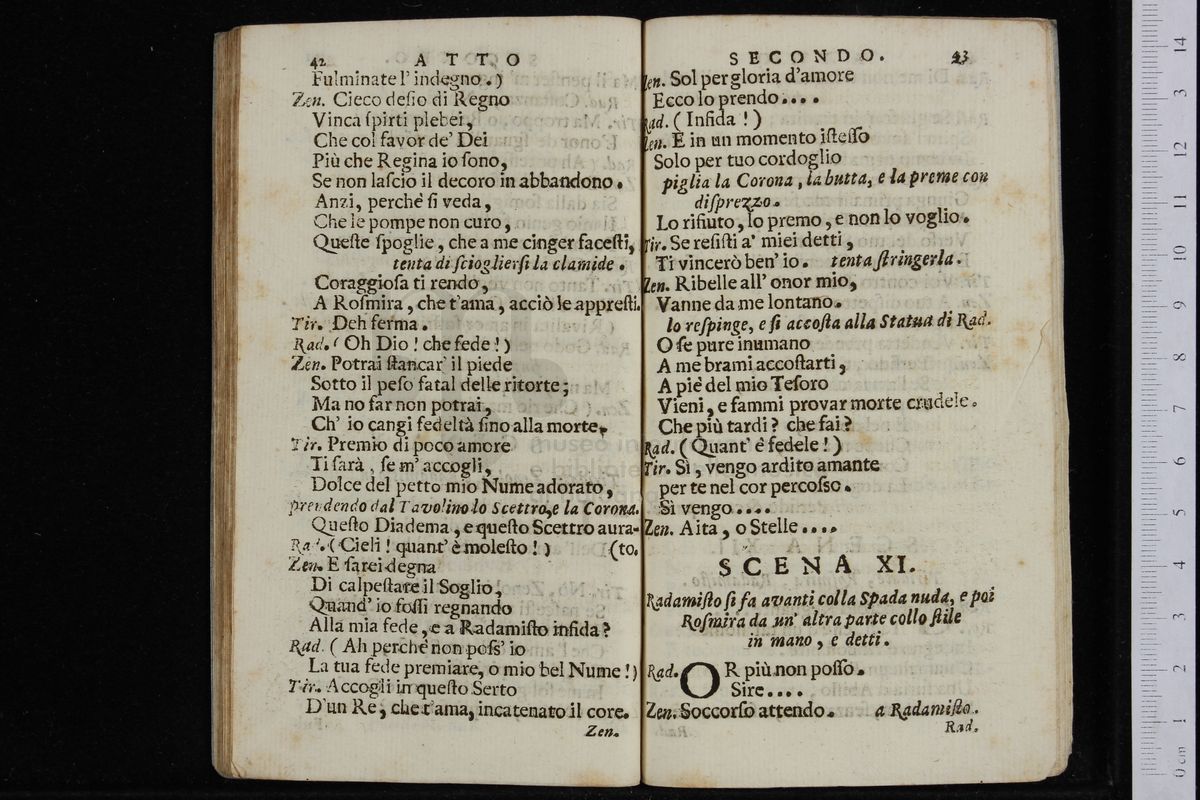 42 ATTO
Fulminate l' indegno.)
Zen. Cieco deſio di Regno
Vinca ſpirti plebei,
Che col favor de' Dei
Più che Regina io ſono,
Se non laſcio il decoro in abbandono.
Anzi, perchè ſi veda,
Che le pompe non curo,
Queſte ſpoglie, che a me cinger faceſti,
tenta di ſcioglierſi la clamide.
Coraggioſa ti rendo,
A Roſmira, che t'ama, acciò le appreſti.
Tir. Deh ferma.
Rad. (Oh Dio! che fede!)
Zen. Potrai ſtancar' il piede
Sotto il peſo fatal delle ritorte;
Ma no far non potrai,
Ch' io cangi fedeltà ſino alla morte.
Tir. Premio di poco amore
Ti ſarà, ſe m' accogli,
Dolce del petto mio Nume adorato,
prendendo dal Tavolino lo Scettro, e la Corona.
Queſto Diadema, e queſto Scettro aura-
Rad. (Cieli! quant' è moleſto!) (to.
Zen. E ſarei degna
Di calpeſtare il Soglio,
Quand' io foſſi regnando
Alla mia fede, e a Radamiſto infida?
Rad. (Ah perchè non poſs' io
La tua fede premiare, o mio bel Nume!)
Tir. Accogli in queſto Serto
D'un Re, che t'ama, incatenato il core.
Zen.
SECONDO. 43
Zen. Sol per gloria d'amore
Ecco lo prendo....
Rad. (Infida!)
Zen. E in un momento iſteſſo
Solo per tuo cordoglio
piglia la Corona, la butta, e la preme con
diſprezzo.
Lo rifiuto, lo premo, e non lo voglio.
Tir. Se reſiſti a' miei detti,
Ti vincerò ben' io. tenta ſtringerla.
Zen. Ribelle all' onor mio,
Vanne da me lontano.
lo reſpinge, e ſi accoſta alla Statua di Rad.
O ſe pure inumano
A me brami accoſtarti,
A piè del mio Teſoro
Vieni, e fammi provar morte crudele.
Che più tardi? che fai?
Rad. (Quant' è fedele!)
Tir. Sì, vengo ardito amante
per te nel cor percoſso.
Sì vengo....
Zen. Aita, o Stelle....
SCENA XI.
Radamiſto ſi fa avanti colla Spada nuda, e poi
Roſmira da un' altra parte collo ſtile
in mano, e detti.
Rad. OR più non poſſo.
Sire....
Zen. Soccorſo attendo. a Radamiſto.
Rad.
0 cm 1 2 3 4 5 6 7 8 9 10 11 12 13 14